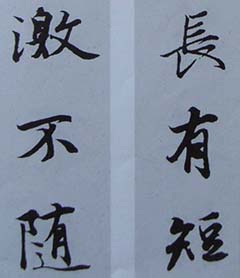 長有短
激不随